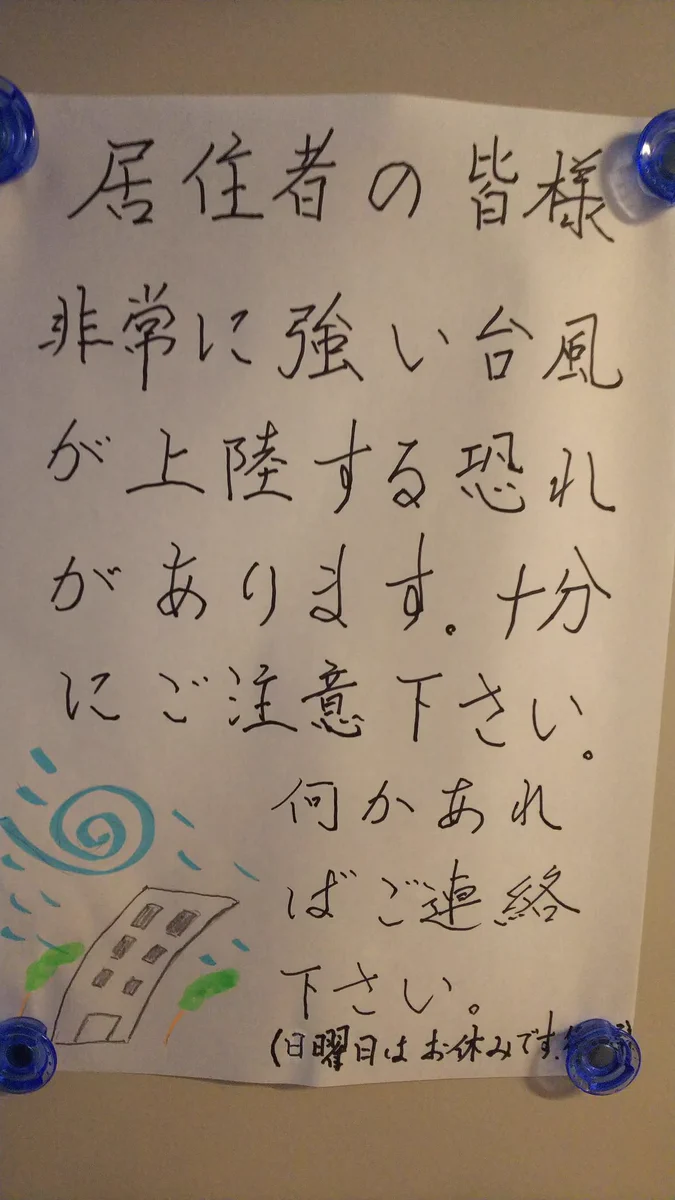 居住者の皆様
非常に強い台風
が上陸する恐れ
があります。十分
にご注意下さい。
何かあれ
ばご連絡
下さい。
(日曜日はお休みです。